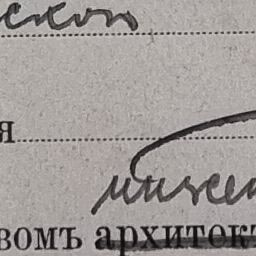 ской
я
инжен
вомъ архитект